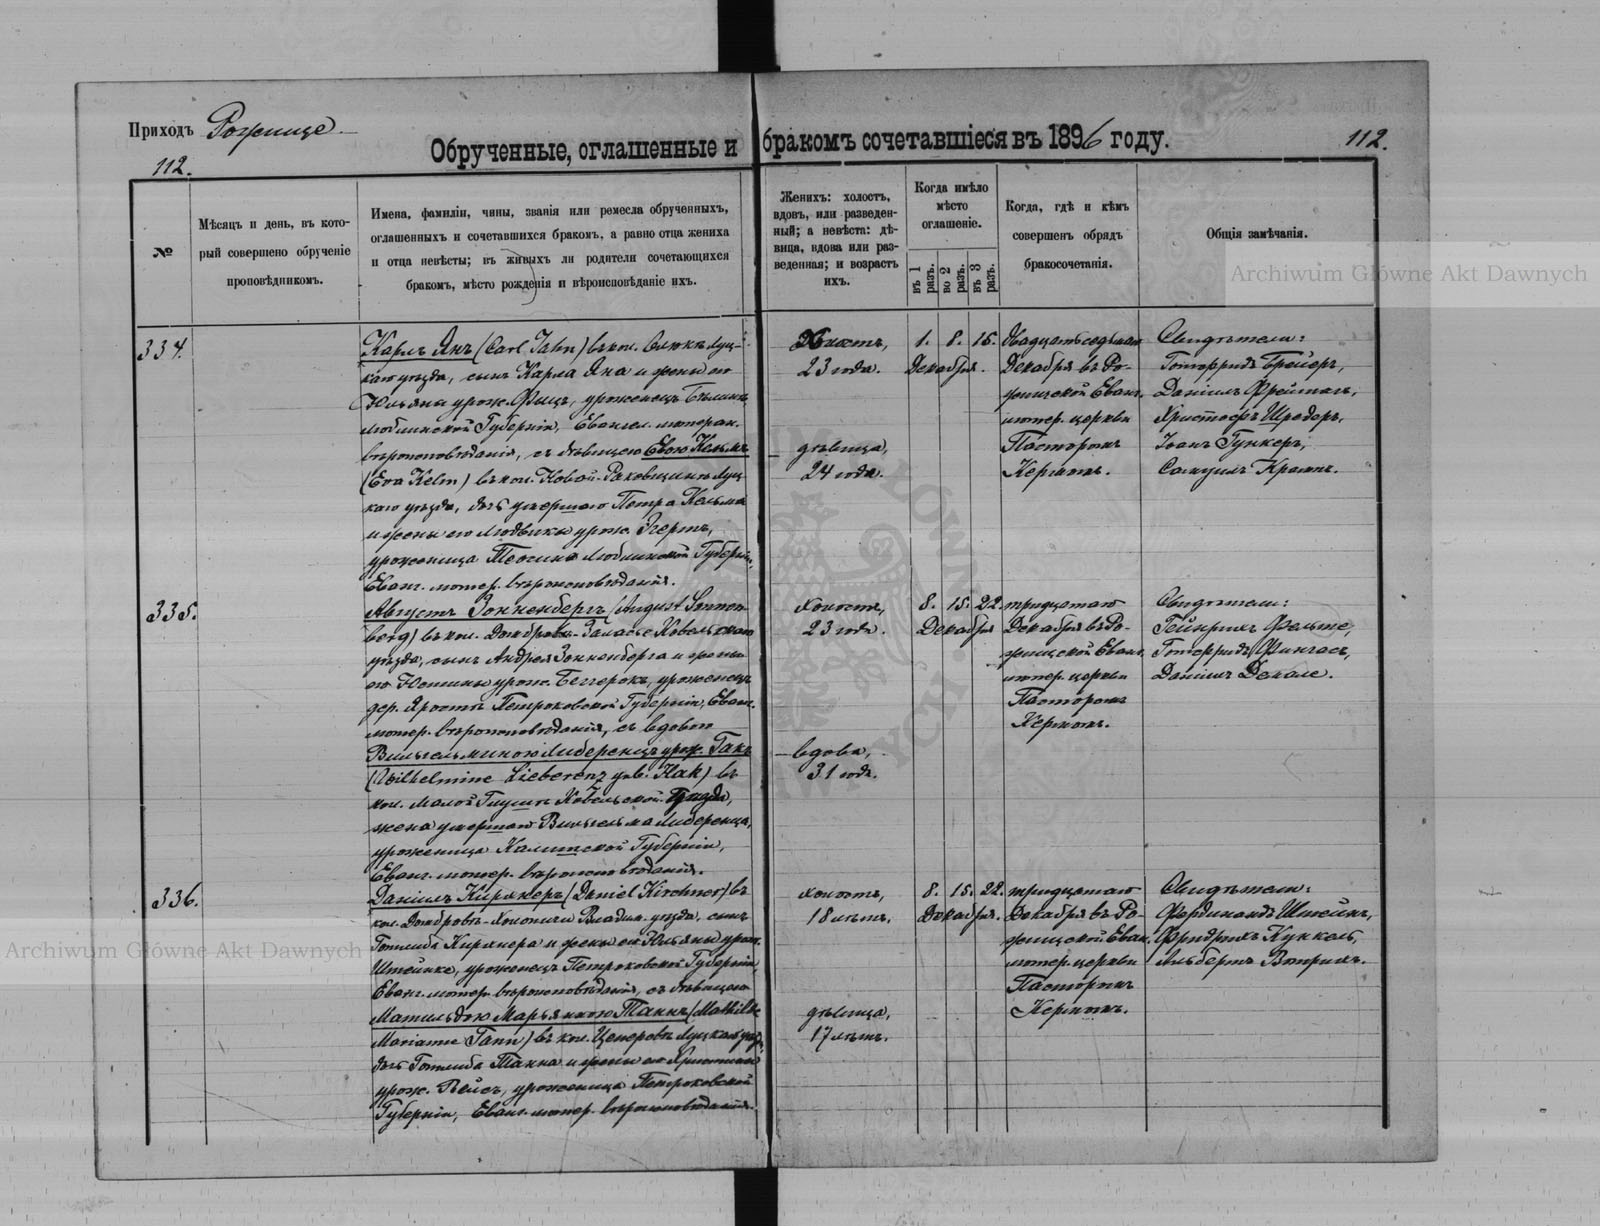 Приходъ Рожище
112.
Обрученные, оглашенные и бракомъ сочетавшіеся въ 1896 году.
112.
№
Мѣсяцъ и день, въ кото-
рый совершено обрученіе
проповѣдникомъ.
Имена, фамиліи, чины, званія или ремесла обрученныхъ,
оглашенныхъ и сочетавшихся бракомъ, а равно отца жениха
и отца невѣсты; въ живыхъ ли родители сочетающихся
бракомъ, мѣсто рожденія и вѣроисповѣданіе ихъ.
Женихъ: холостъ,
вдовъ, или разведен-
ный; а невѣста: дѣ-
вица, вдова или раз-
веденная; и возрастъ
ихъ.
Когда имѣло
мѣсто
оглашеніе.
въ 1 разъ.
во 2 разъ.
въ 3 разъ.
Когда, гдѣ и кѣмъ
совершенъ обрядъ
бракосочетанія.
Общія замѣчанія.
Archiwum Główne Akt Dawnych
334.
Карлъ Янъ (Carl Jahn) въ кол. Луц-
каго уѣзда, сынъ Карла Яна и жены его
Юльяны урож. Фицъ, уроженецъ
Люблинской Губерніи, Евангел. лютеран.
вѣроисповѣданія, съ дѣвицею Евою Кельмъ
(Eva Kelm) въ кол. Новой-Раковщинѣ Луц
каго уѣзда, дочь умершаго Петра Кельма
и жены его Людвики урож. Эгертъ,
уроженица Люблинской Губерніи,
Еванг. лютер. вѣроисповѣданія.
Холостъ,
23 года.
дѣвица,
24 года.
1. 8. 15.
Декабря.
Двадцать седьмаго
Декабря въ Ро-
жищской Еванг.
лютер. церкви
Пасторомъ
Кермомъ.
Свидѣтели:
Готфридъ Брейеръ,
Даніилъ Фрейталь,
Христофъ Шредеръ,
Іоанъ Гункеръ,
Самуилъ Крампъ.
335.
Августъ Зонненбергъ (August Sonnen-
berg) въ кол. Домброва- Ковельскаго
уѣзда, сынъ Андрея Зонненберга и жены
его Юстины урож. уроженецъ
дер. Петроковской Губерніи, Еванг.
лютер. вѣроисповѣданія, съ вдовою
Вильгельминою Либеренцъ урож. Гакъ
(Wilhelmine Lieberenz geb. Hak) въ
кол. Малой Глушѣ Ковельскаго уѣзда,
жена умершаго Вильгельма Либеренца,
уроженица Калишской Губерніи,
Еванг. лютер. вѣроисповѣданія.
холостъ,
23 года.
вдова,
31 годъ.
8. 15. 22.
Декабря
тридцатаго
Декабря въ Ро-
жищской Еванг.
лютер. церкви
Пасторомъ
Кермомъ.
Свидѣтели:
Гейнрихъ Фельте,
Готфридъ Фингасъ,
Даніилъ Декале.
336.
Даніилъ Кирхнеръ (Daniel Kirchner) въ
кол. Домброва- Владим. уѣзда, сынъ
Готлиба Кирхнера и жены его Юльяны урож.
Штейнке, уроженецъ Петроковской Губерніи,
Еванг. лютер. вѣроисповѣданія, съ дѣвицею
Матильдою Марьянною Таннъ (Mathilde
Marianne Tann) въ кол. Луцкаго уѣзд.
дочь Готлиба Танна и жены его Христины
урож. Вейсъ, уроженица Петроковской
Губерніи, Еванг. лютер. вѣроисповѣданія.
холостъ,
18 лѣтъ.
дѣвица,
17 лѣтъ.
8. 15. 22.
Декабря.
тридцатаго
Декабря въ Ро-
жищской Еван.
лютер. церкви
Пасторомъ
Кермомъ.
Свидѣтели:
Фердинандъ Штейнъ,
Фридрихъ Куккель,
Альбертъ
Archiwum Główne Akt Dawnych